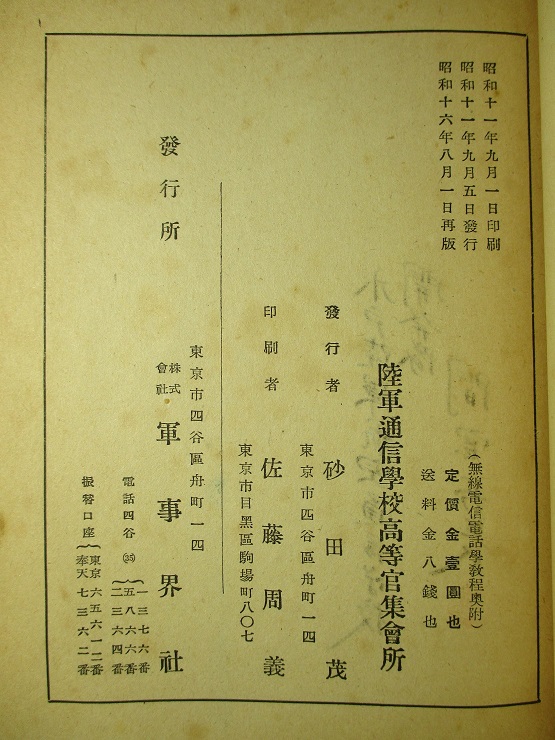 昭和十一年九月一日印刷
昭和十一年九月五日發行
昭和十六年八月一日再版
(無線電信電話學教程奧附)
定價金壹圓也
送料金八錢也
陸軍通信學校高等官集會所
發行者 砂田茂
東京市四谷區舟町一四
印刷者 佐藤周義
東京市目黑區駒場町八〇七
發行所
東京市四谷區舟町一四
株式會社 軍事界社
電話四谷(35)
一三七六番
五八六六番
二三六四番
振替口座
東京六五六一二番
奉天七三六二番